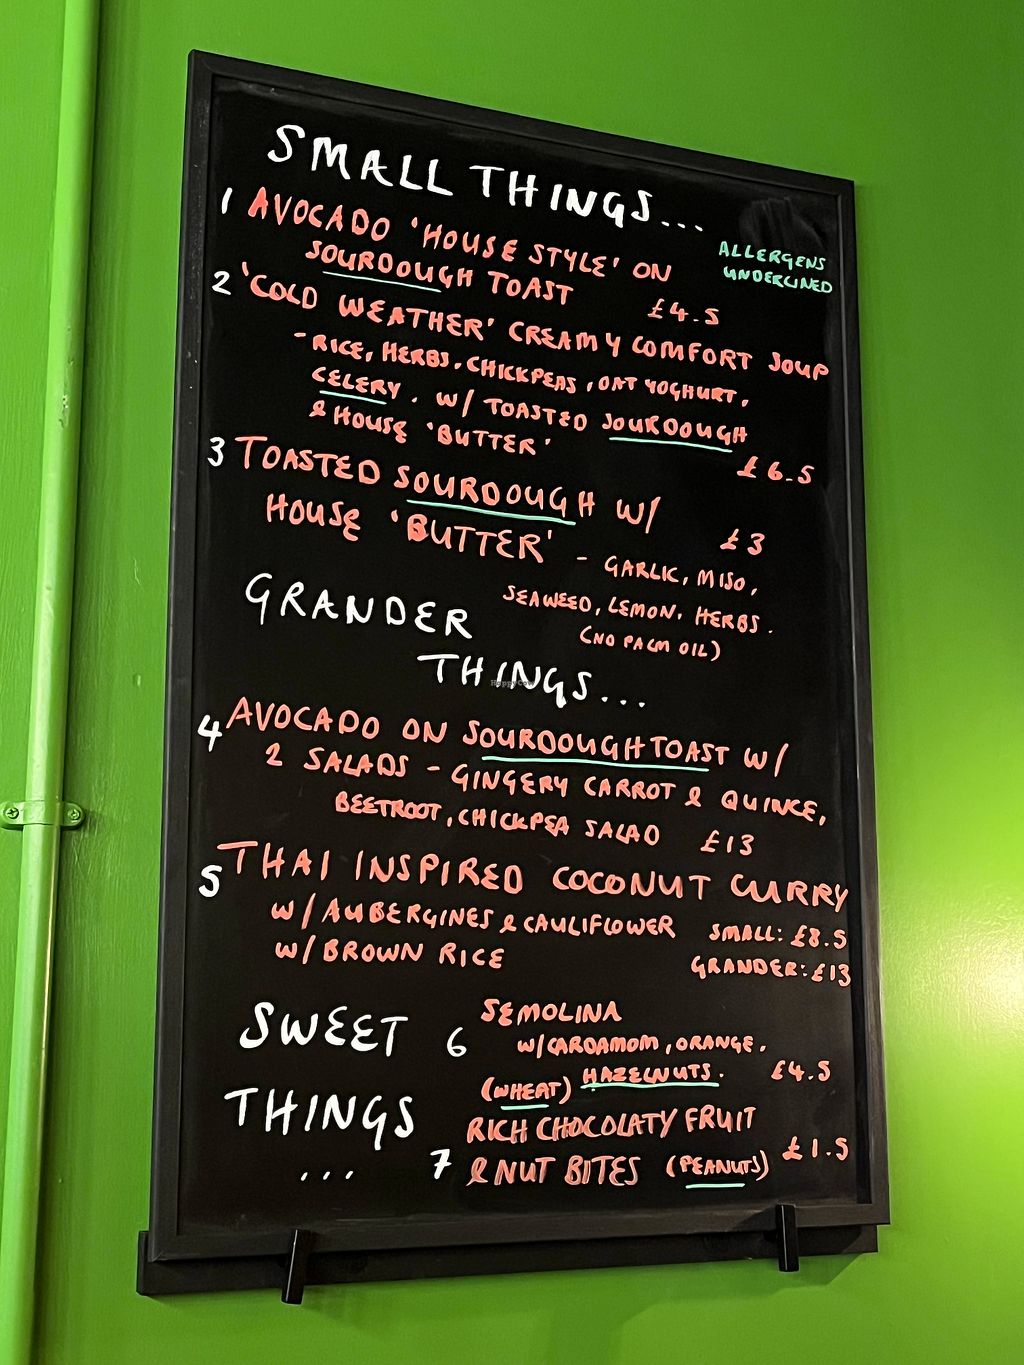 SMALL THINGS...
ALLERGENS
UNDERLINED
1 AVOCADO 'HOUSE STYLE' ON
SOURDOUGH TOAST £4.5
2 'COLD WEATHER' CREAMY COMFORT SOUP
- RICE, HERBS, CHICKPEAS, OAT YOGHURT,
CELERY. W/ TOASTED SOURDOUGH
& HOUSE 'BUTTER' £6.5
3 TOASTED SOURDOUGH W/
HOUSE 'BUTTER' £3
- GARLIC, MISO,
SEAWEED, LEMON, HERBS.
(NO PALM OIL)
GRANDER
THINGS...
4 AVOCADO ON SOURDOUGH TOAST W/
2 SALADS - GINGERY CARROT & QUINCE,
BEETROOT, CHICKPEA SALAD £13
5 THAI INSPIRED COCONUT CURRY
W/ AUBERGINES & CAULIFLOWER SMALL: £8.5
W/ BROWN RICE GRANDER: £13
SWEET
THINGS
...
6 SEMOLINA
W/CARDAMOM, ORANGE.
(WHEAT) HAZELNUTS. £4.5
RICH CHOCOLATY FRUIT
7 & NUT BITES (PEANUTS) £1.5
HappyCow